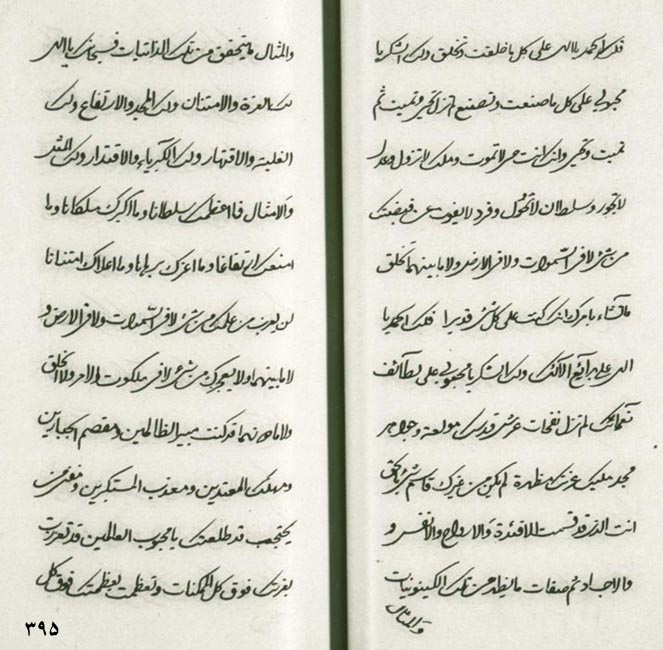 فلك الحمد يا الهي على كل ما خلقت وتخلق ولك الشكر يا
محبوبي على كل ما صنعت وتصنع لم تزل تحيي وتميت ثم
تميت وتحيي وانك انت حي لا تموت وملك لا تزول وعدل
لا تجور وسلطان لا تحول وفرد لا يفوت عن قبضتك
من شيء لا في السموات ولا في الارض ولا ما بينهما تخلق
ما تشاء بامرك انك كنت على كل شيء قديرا فلك الحمد يا
الهي على بدايع الآئك ولك الشكر يا محبوبي على لطائف
نعمائك لم تزل نفحات عرش قدسك مولعة وجواهر
مجد مليك عزتك مظهرة لم يكن من غيرك قاسم شيء بالحق
انت الذي قد قسمت للافئدة والارواح والانفس و
والاجساد ثم صفات ما يظهر من تلك الكينونيات
والمثال
والمثال ما يتحقق من تلك الذاتيات فسبحانك يا الهي
لك العزة والامتنان ولك المجد والارتفاع ولك
الغلبة والاقتهار ولك الكبرياء والاقتدار ولك المثل
والامثال فما اعظمك سلطانا وما اكبرك ملكانا وما
امنعك ارتفاعا وما اعزك برهانا وما اعلاك امتنانا
لن يعزب من علمك من شيء لا في السموات ولا في الارض و
لا ما بينهما ولا يعجزك من شيء لا في ملكوت الامر والخلق
ولا ما دونهما قد كنت مبير الظالمين ومقصم الجبارين
ومهلك المعتدين ومعذب المستكبرين ومفني من
يحتجب قد طلعتك يا محبوب العالمين قد تعززت
بعزتك فوق كل الممكنات وتعظمت بعظمتك فوق كل
۳۹۵